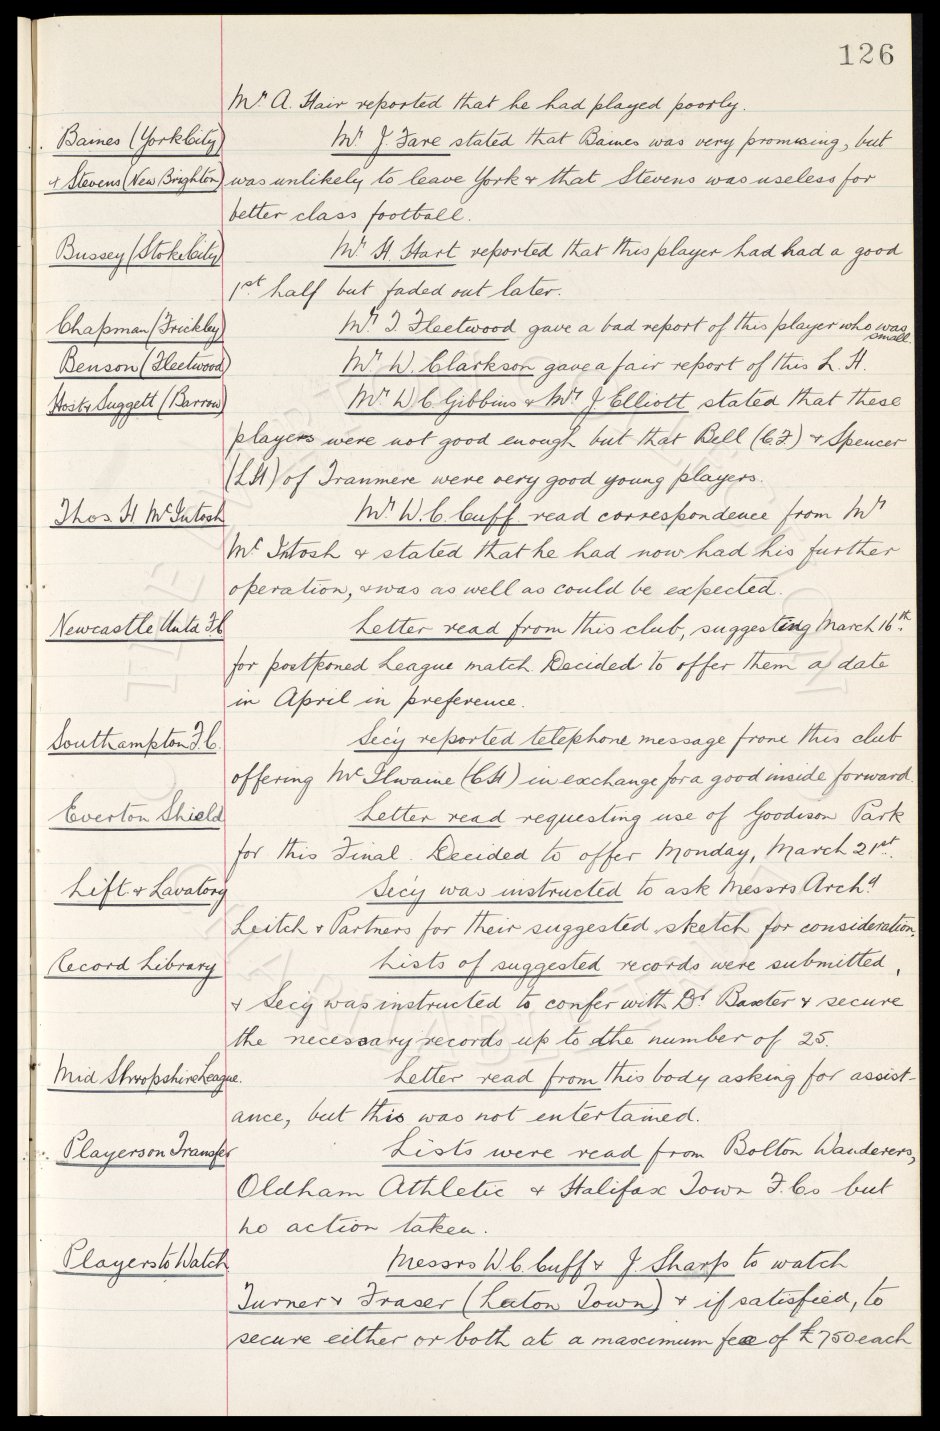 126
Mr. A. Hair reported that he had played poorly.
Baines (York City) Mr. J. Fare stated that Baines was very promising, but
& Stevens (New Brighton) was unlikely to leave York & that Stevens was useless for
better class football.
Bussey (Stoke City) Mr. H. Hart reported that this player had had a good
1st half but faded out later.
Chapman (Frickley) Mr. T. Fleetwood gave a bad report of this player who was small.
Benson (Fleetwood) Mr. W. Clarkson gave a fair report of this L.H.
Host & Suggett (Barrow) Mr. W.C. Gibbins & Mr. J. Elliott stated that these
players were not good enough but that Bell (C.F) & Spencer
(L.H) of Tranmere were very good young players.
Thos. H McIntosh Mr. W.C. Cuff read correspondence from Mr
McIntosh & stated that he had now had his further
operation, & was as well as could be expected.
Newcastle Untd F.C Letter read from this club, suggesting March 16th.
for postponed League match. Decided to offer them a date
in April in preference.
Southampton F.C. Secy reported telephone message from this club
offering McIlwaine (C.H) in exchange for a good inside forward.
Everton Shield Letter read requesting use of Goodison Park
for this Final. Decided to offer Monday, March 21st.
Lift & Lavatory Secy was instructed to ask Messrs Archd
Leitch & Partners for their suggested sketch for consideration.
Record Library Lists of suggested records were submitted,
& Secy was instructed to confer with Dr Baxter & secure
the necessary records up to the number of 25.
Mid Shropshire League. Letter read from this body asking for assist-
ance, but this was not entertained.
Players on Transfer Lists were read from Bolton Wanderers,
Oldham Athletic & Halifax Town F.Cs but
no action taken.
Players to Watch Messrs W.C. Cuff & J. Sharp to watch
Turner & Fraser (Luton Town) & if satisfied, to
secure either or both at a maximum fee of £750 each